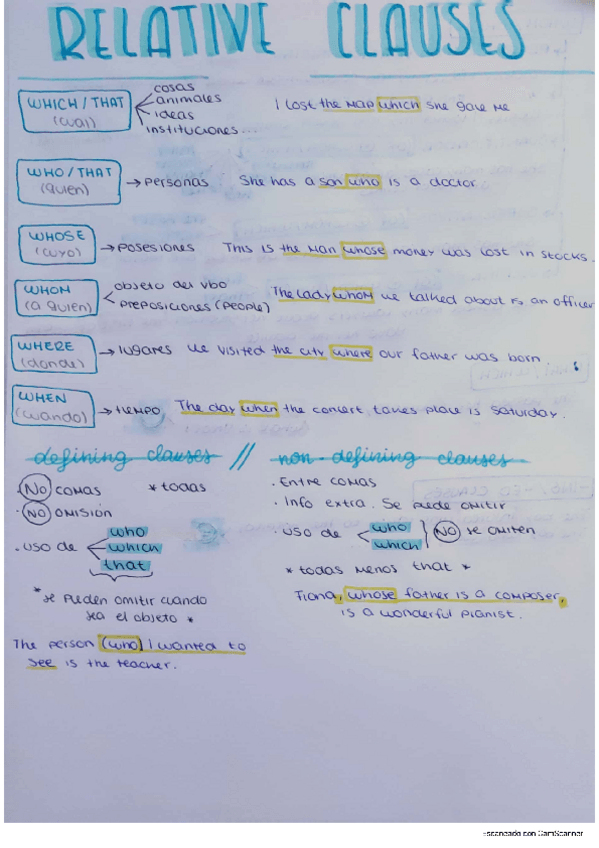 RELATIVE CLAUSES
WHICH / THAT
(cual)
cosas
animales
ideas
instituciones...
I lost the map which she gave me
WHO / THAT
(quien)
→ personas
She has a son who is a doctor
WHOSE
(cuyo)
→ posesiones
This is the man whose money was lost in stocks.
WHOM
(a quien)
objeto del vbo
preposiciones (people)
The lady whom we talked about is an officer
WHERE
(donde)
→ lugares
We visited the city where our father was born.
WHEN
(cuando)
→ tiempo
The day when the concert takes place is Saturday.
defining clauses // non-defining clauses
· NO comas * todas
· NO omisión
· uso de
who
which
that
* se pueden omitir cuando
sea el objeto *
The person (who) I wanted to
see is the teacher.
· Entre comas
· Info extra. Se puede omitir
· uso de
who
which
NO se omiten
* todas menos that *
Fiona, whose father is a composer,
is a wonderful pianist.
Escaneado con CamScanner